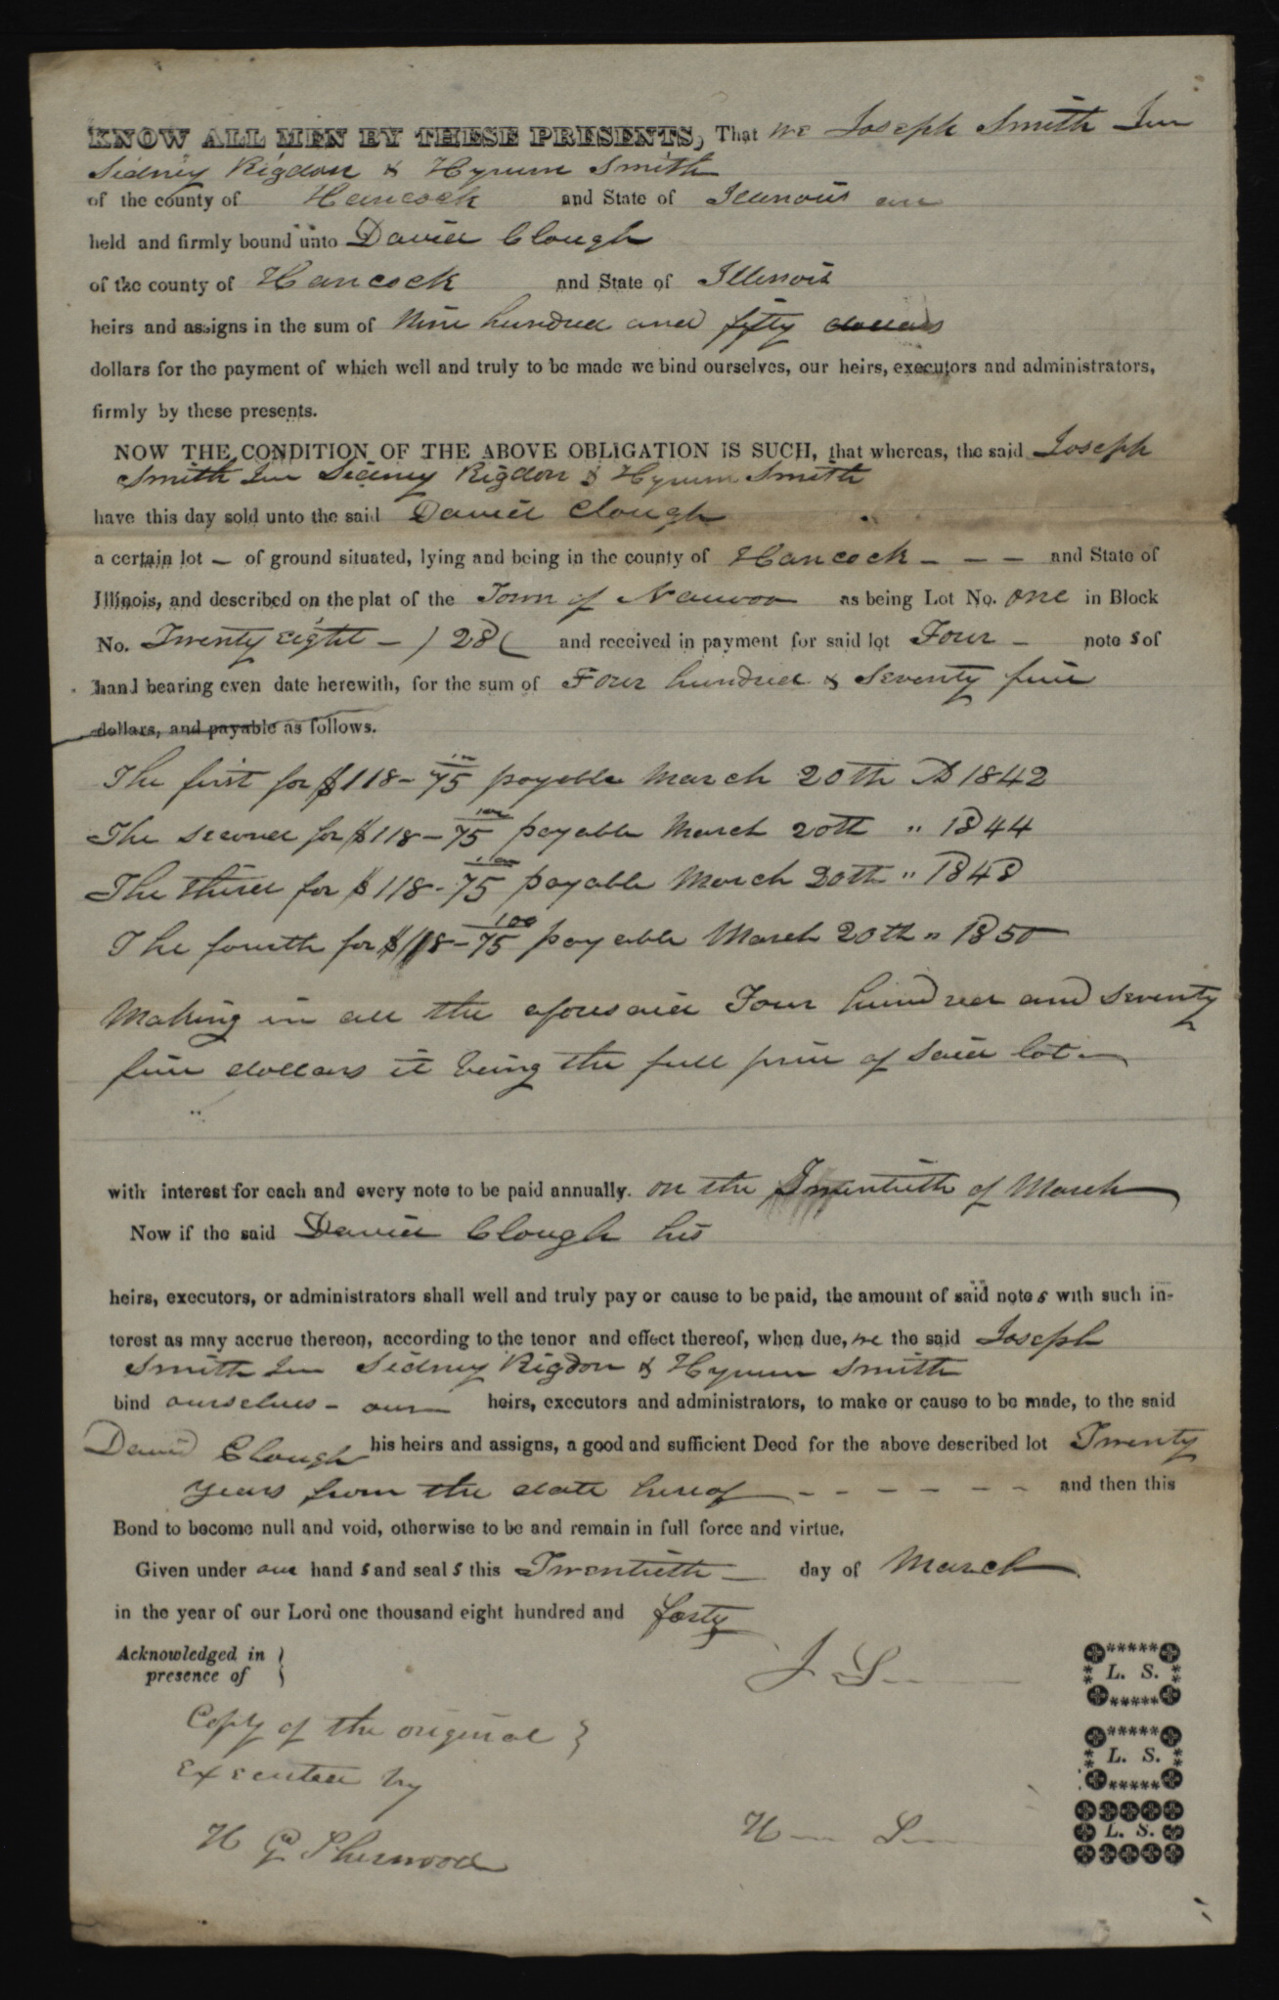 KNOW ALL MEN BY THESE PRESENTS, That we Joseph Smith Jun
Sidney Rigdon & Hyrum Smith
of the county of Hancock and State of Illinois are
held and firmly bound unto David Clough
of the county of Hancock and State of Illinois
heirs and assigns in the sum of Nine hundred and fifty dollars
dollars for the payment of which well and truly to be made we bind ourselves, our heirs, executors and administrators,
firmly by these presents.
NOW THE CONDITION OF THE ABOVE OBLIGATION IS SUCH, that whereas, the said Joseph
Smith Jun Sidney Rigdon & Hyrum Smith
have this day sold unto the said David Clough
a certain lot – of ground situated, lying and being in the county of Hancock – – – and State of
Illinois, and described on the plat of the Town of Nauvoo as being Lot No. one in Block
No. Twenty eight – ) 28 ( and received in payment for said lot Four – note s of
hand bearing even date herewith, for the sum of Four hundred & seventy five
dollars, and payable as follows.
The first for $118-75/100 payable March 20th AD 1842
The second for $118-75/100 payable March 20th " 1844
The third for $118-75/100 payable March 20th " 1848
The fourth for $118-75/100 payable March 20th " 1850
Making in all the aforesaid Four hundred and seventy
five dollars it being the full price of said lot –
with interest for each and every note to be paid annually. on the Twentieth of March
Now if the said David Clough his
heirs, executors, or administrators shall well and truly pay or cause to be paid, the amount of said note s with such in-
terest as may accrue thereon, according to the tenor and effect thereof, when due, we the said Joseph
Smith Jun Sidney Rigdon & Hyrum Smith
bind ourselves – our heirs, executors and administrators, to make or cause to be made, to the said
David Clough his heirs and assigns, a good and sufficient Deed for the above described lot Twenty
years from the date hereof – – – – – – – and then this
Bond to become null and void, otherwise to be and remain in full force and virtue.
Given under our hand s and seal s this Twentieth – day of March
in the year of our Lord one thousand eight hundred and forty
Acknowledged in }
presence of
J S
L. S.
Copy of the original }
Executed by
L. S.
H G Sherwood
H S
L. S.